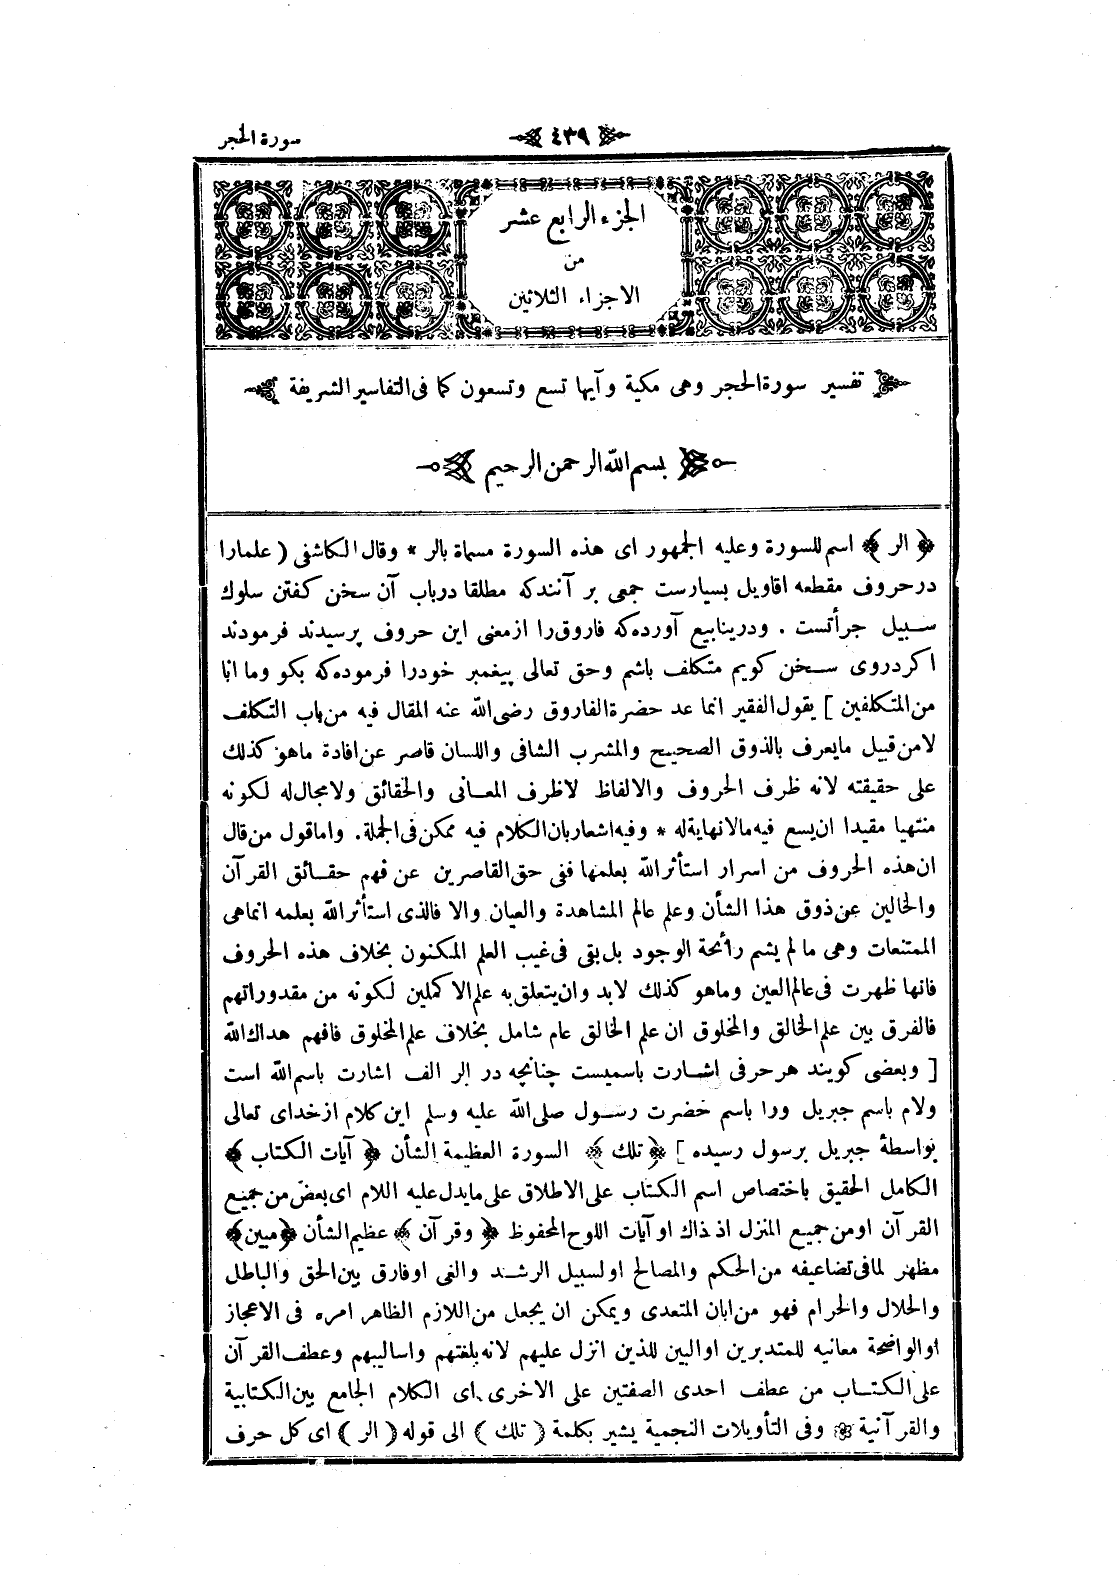 سورة الحجر
٤٣٩
الجزء الرابع عشر
من
الاجزاء الثلاثين
تفسير سورة الحجر وهى مكية وآيها تسع وتسعون كما فى التفاسير الشريفة
بسم الله الرحمن الرحيم
﴿ الر ﴾ اسم للسورة وعليه الجمهور اى هذه السورة مسماة بالر * وقال الكاشفى ( علمارا
درحروف مقطعه اقاويل بسيارست جمعى بر آنندكه مطلقا درباب آن سخن كفتن سلوك
سبيل جرأتست . ودرينابيع آورده كه فاروق را ازمعنى اين حروف پرسيدند فرمودند
اكردروى سخن كويم متكلف باشم وحق تعالى پيغمبر خودرا فرموده كه بكو وما انا
من المتكلفين ] يقول الفقير انما عد حضرة الفاروق رضى الله عنه المقال فيه من باب التكلف
لامن قبيل مايعرف بالذوق الصحيح والمشرب الشافى واللسان قاصر عن افادة ماهو كذلك
على حقيقته لانه ظرف الحروف والالفاظ لاظرف المعانى والحقائق ولامجال له لكونه
منتهيا مقيدا ان يسع فيه مالانهاية له * وفيه اشعار بان الكلام فيه ممكن فى الجملة . واماقول من قال
ان هذه الحروف من اسرار استأثر الله بعلمها ففى حق القاصرين عن فهم حقائق القرآن
والخالين عن ذوق هذا الشأن وعلم عالم المشاهدة والعيان والا فالذى استأثر الله بعلمه انماهى
الممتنعات وهى ما لم يشم رائحة الوجود بل بقى فى غيب العلم المكنون بخلاف هذه الحروف
فانها ظهرت فى عالم العين وماهو كذلك لابد وان يتعلق به علم الاكملين لكونه من مقدوراتهم
فالفرق بين علم الخالق والمخلوق ان علم الخالق عام شامل بخلاف علم المخلوق فافهم هداك الله
[ وبعضى كويند هرحرفى اشارت باسميست چنانچه در الر الف اشارت باسم الله است
ولام باسم جبريل ورا باسم حضرت رسول صلى الله عليه وسلم اين كلام ازخداى تعالى
بواسطۀ جبريل برسول رسيده ] ﴿ تلك ﴾ السورة العظيمة الشأن ﴿ آيات الكتاب ﴾
الكامل الحقيق باختصاص اسم الكتاب على الاطلاق على مايدل عليه اللام اى بعض من جميع
القرآن اومن جميع المنزل اذ ذاك او آيات اللوح المحفوظ ﴿ وقرآن ﴾ عظيم الشأن ﴿ مبين ﴾
مظهر لمافى تضاعيفه من الحكم والمصالح اولسبيل الرشد والغى اوفارق بين الحق والباطل
والحلال والحرام فهو من ابان المتعدى ويمكن ان يجعل من اللازم الظاهر امره فى الاعجاز
اوالواضحة معانيه للمتدبرين اوالبين للذين انزل عليهم لانه بلغتهم واساليبهم وعطف القرآن
على الكتاب من عطف احدى الصفتين على الاخرى اى الكلام الجامع بين الكتابية
والقرآنية ❀ وفى التأويلات النجمية يشير بكلمة ( تلك ) الى قوله ( الر ) اى كل حرف